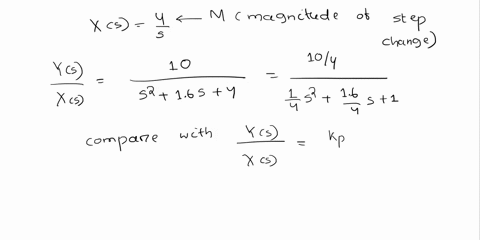 X(s) = 4/s ← M (magnitude of step change)
Y(s)/X(s) = 10/(s² + 1.6s + 4) = (10/4)/(1/4 s² + 1.6/4 s + 1)
compare with Y(s)/X(s) = kp